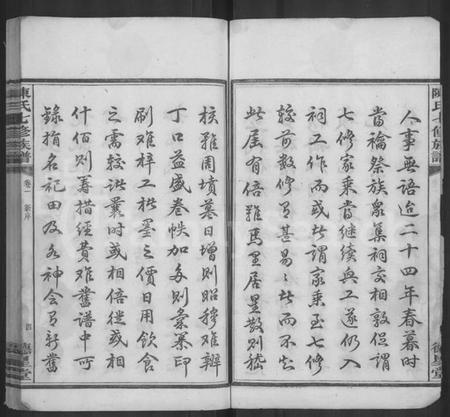 人事無語迨二十四年春暮時
當禴祭族衆集祠交相敦促謂
七修家乘當继续與工遂仍入
祠工作而或者謂家乘至七修
較前数修為甚易々者而不知
此届有倍難焉里居星散則嵇
核難周墳墓日增則昭穆難辨
丁口益盛卷帙加多則彙纂印
刷难梓工楮墨之價日用飲食
之需較諸曩时或相倍蓰或相
什佰則籌措經費难舊譜中可
錄指名祀田及各神會有新舊
陳氏七修族譜
卷一 新序
四
陳氏七修族譜